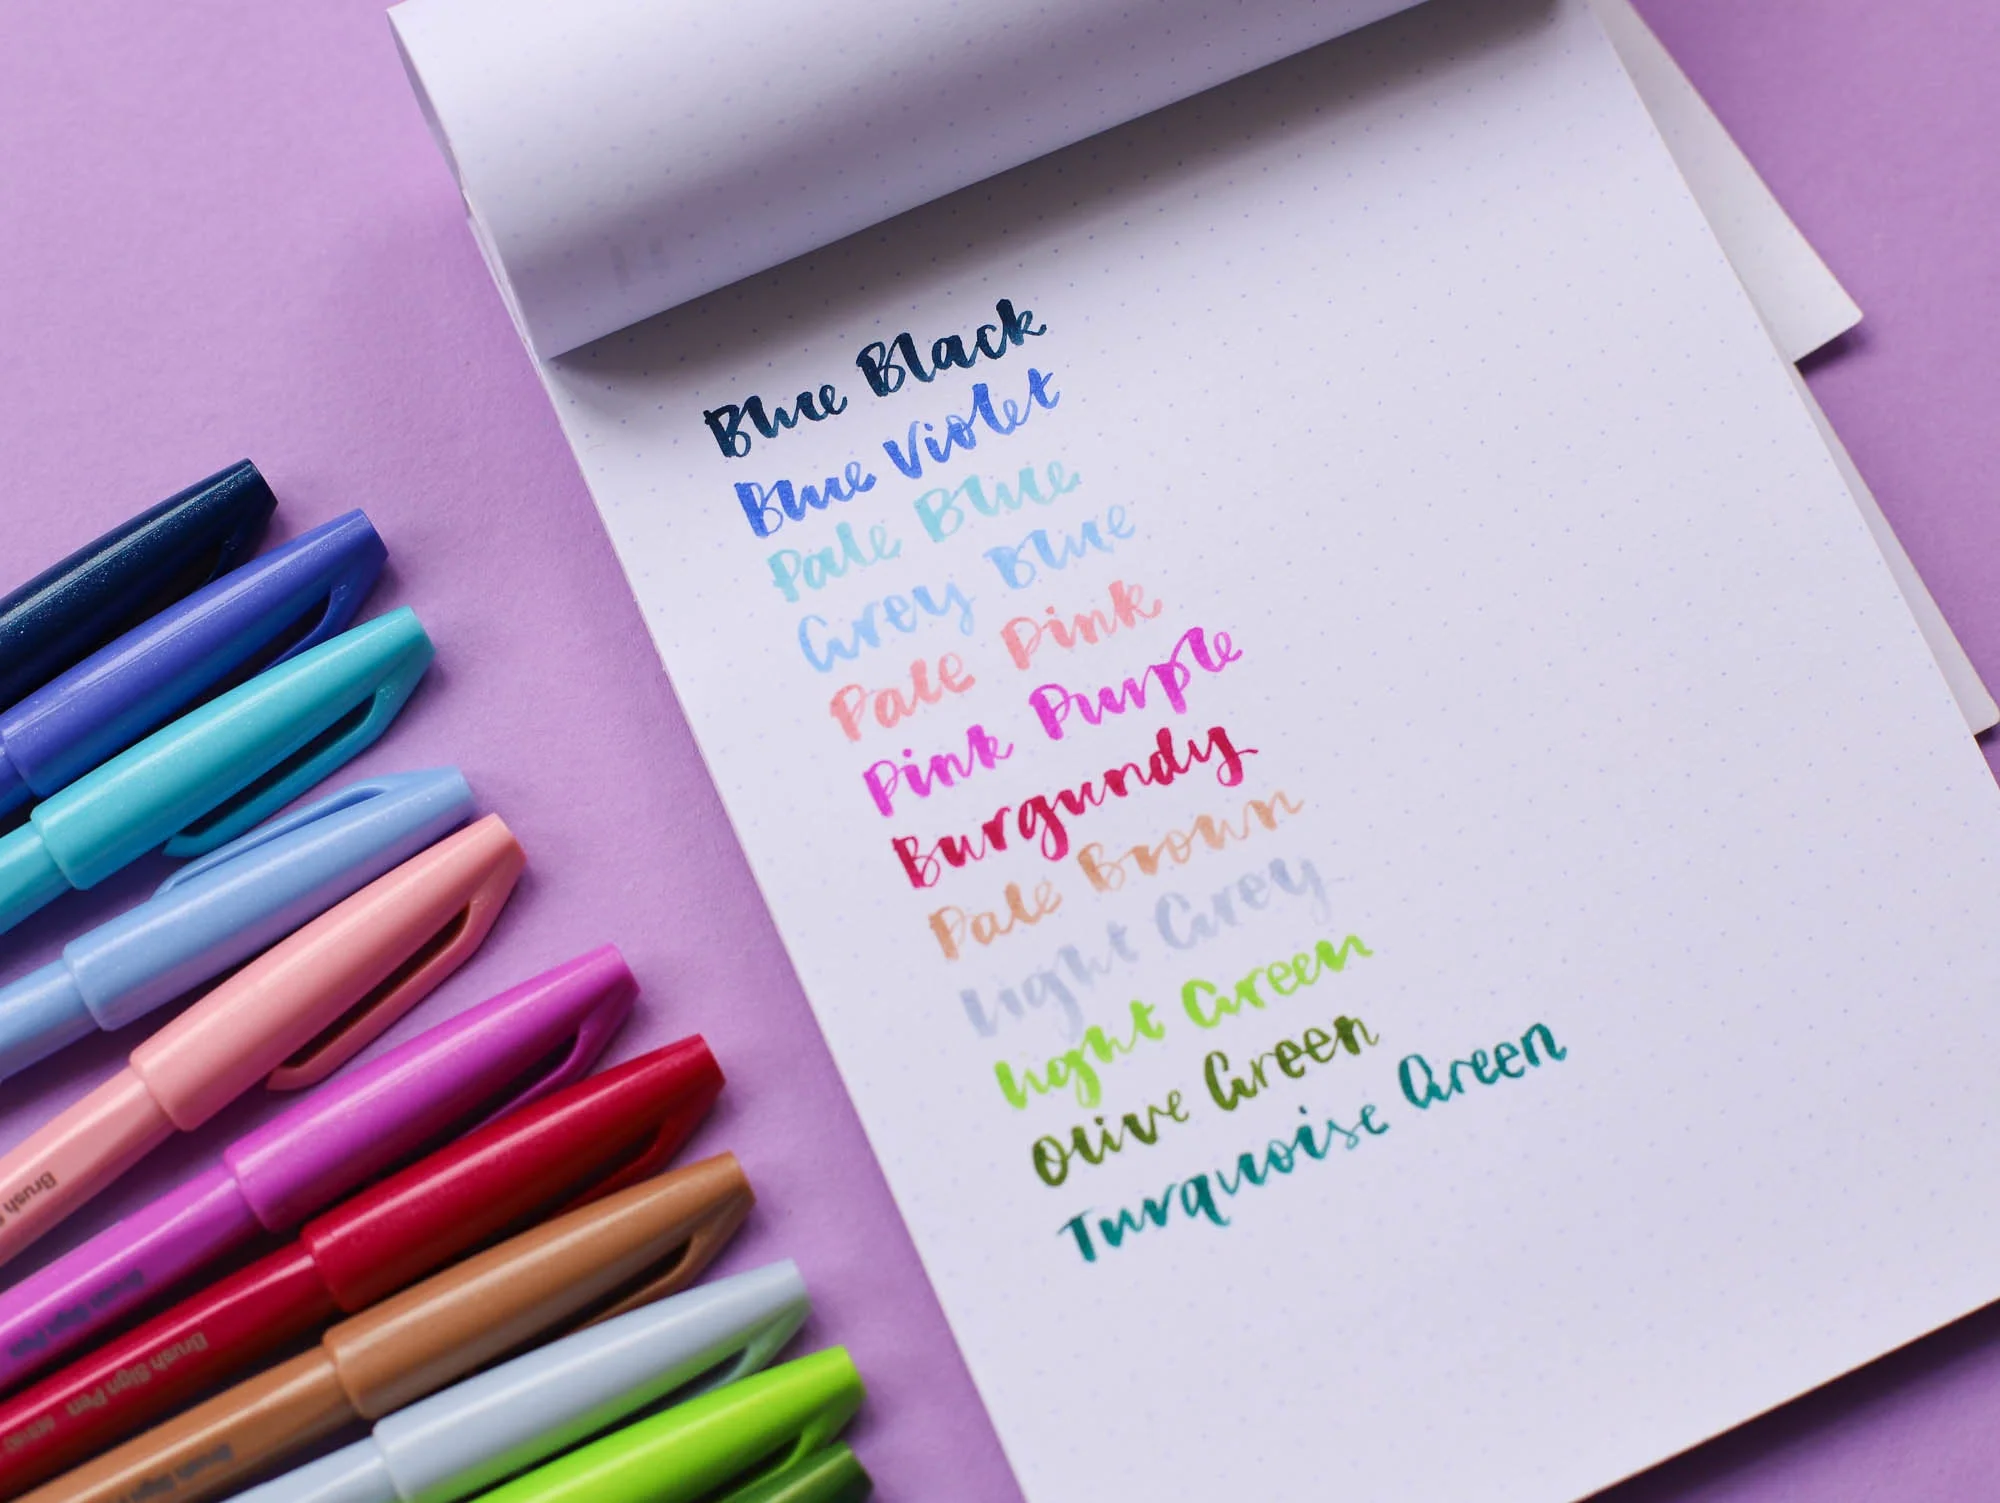 Blue Black
Blue Violet
Pale Blue
Grey Blue
Pale Pink
Pink Purple
Burgundy
Pale Brown
Light Grey
Light Green
Olive Green
Turquoise Green
Brush
Brush Sign Pen
Brush Sign Pen
Brush Sign